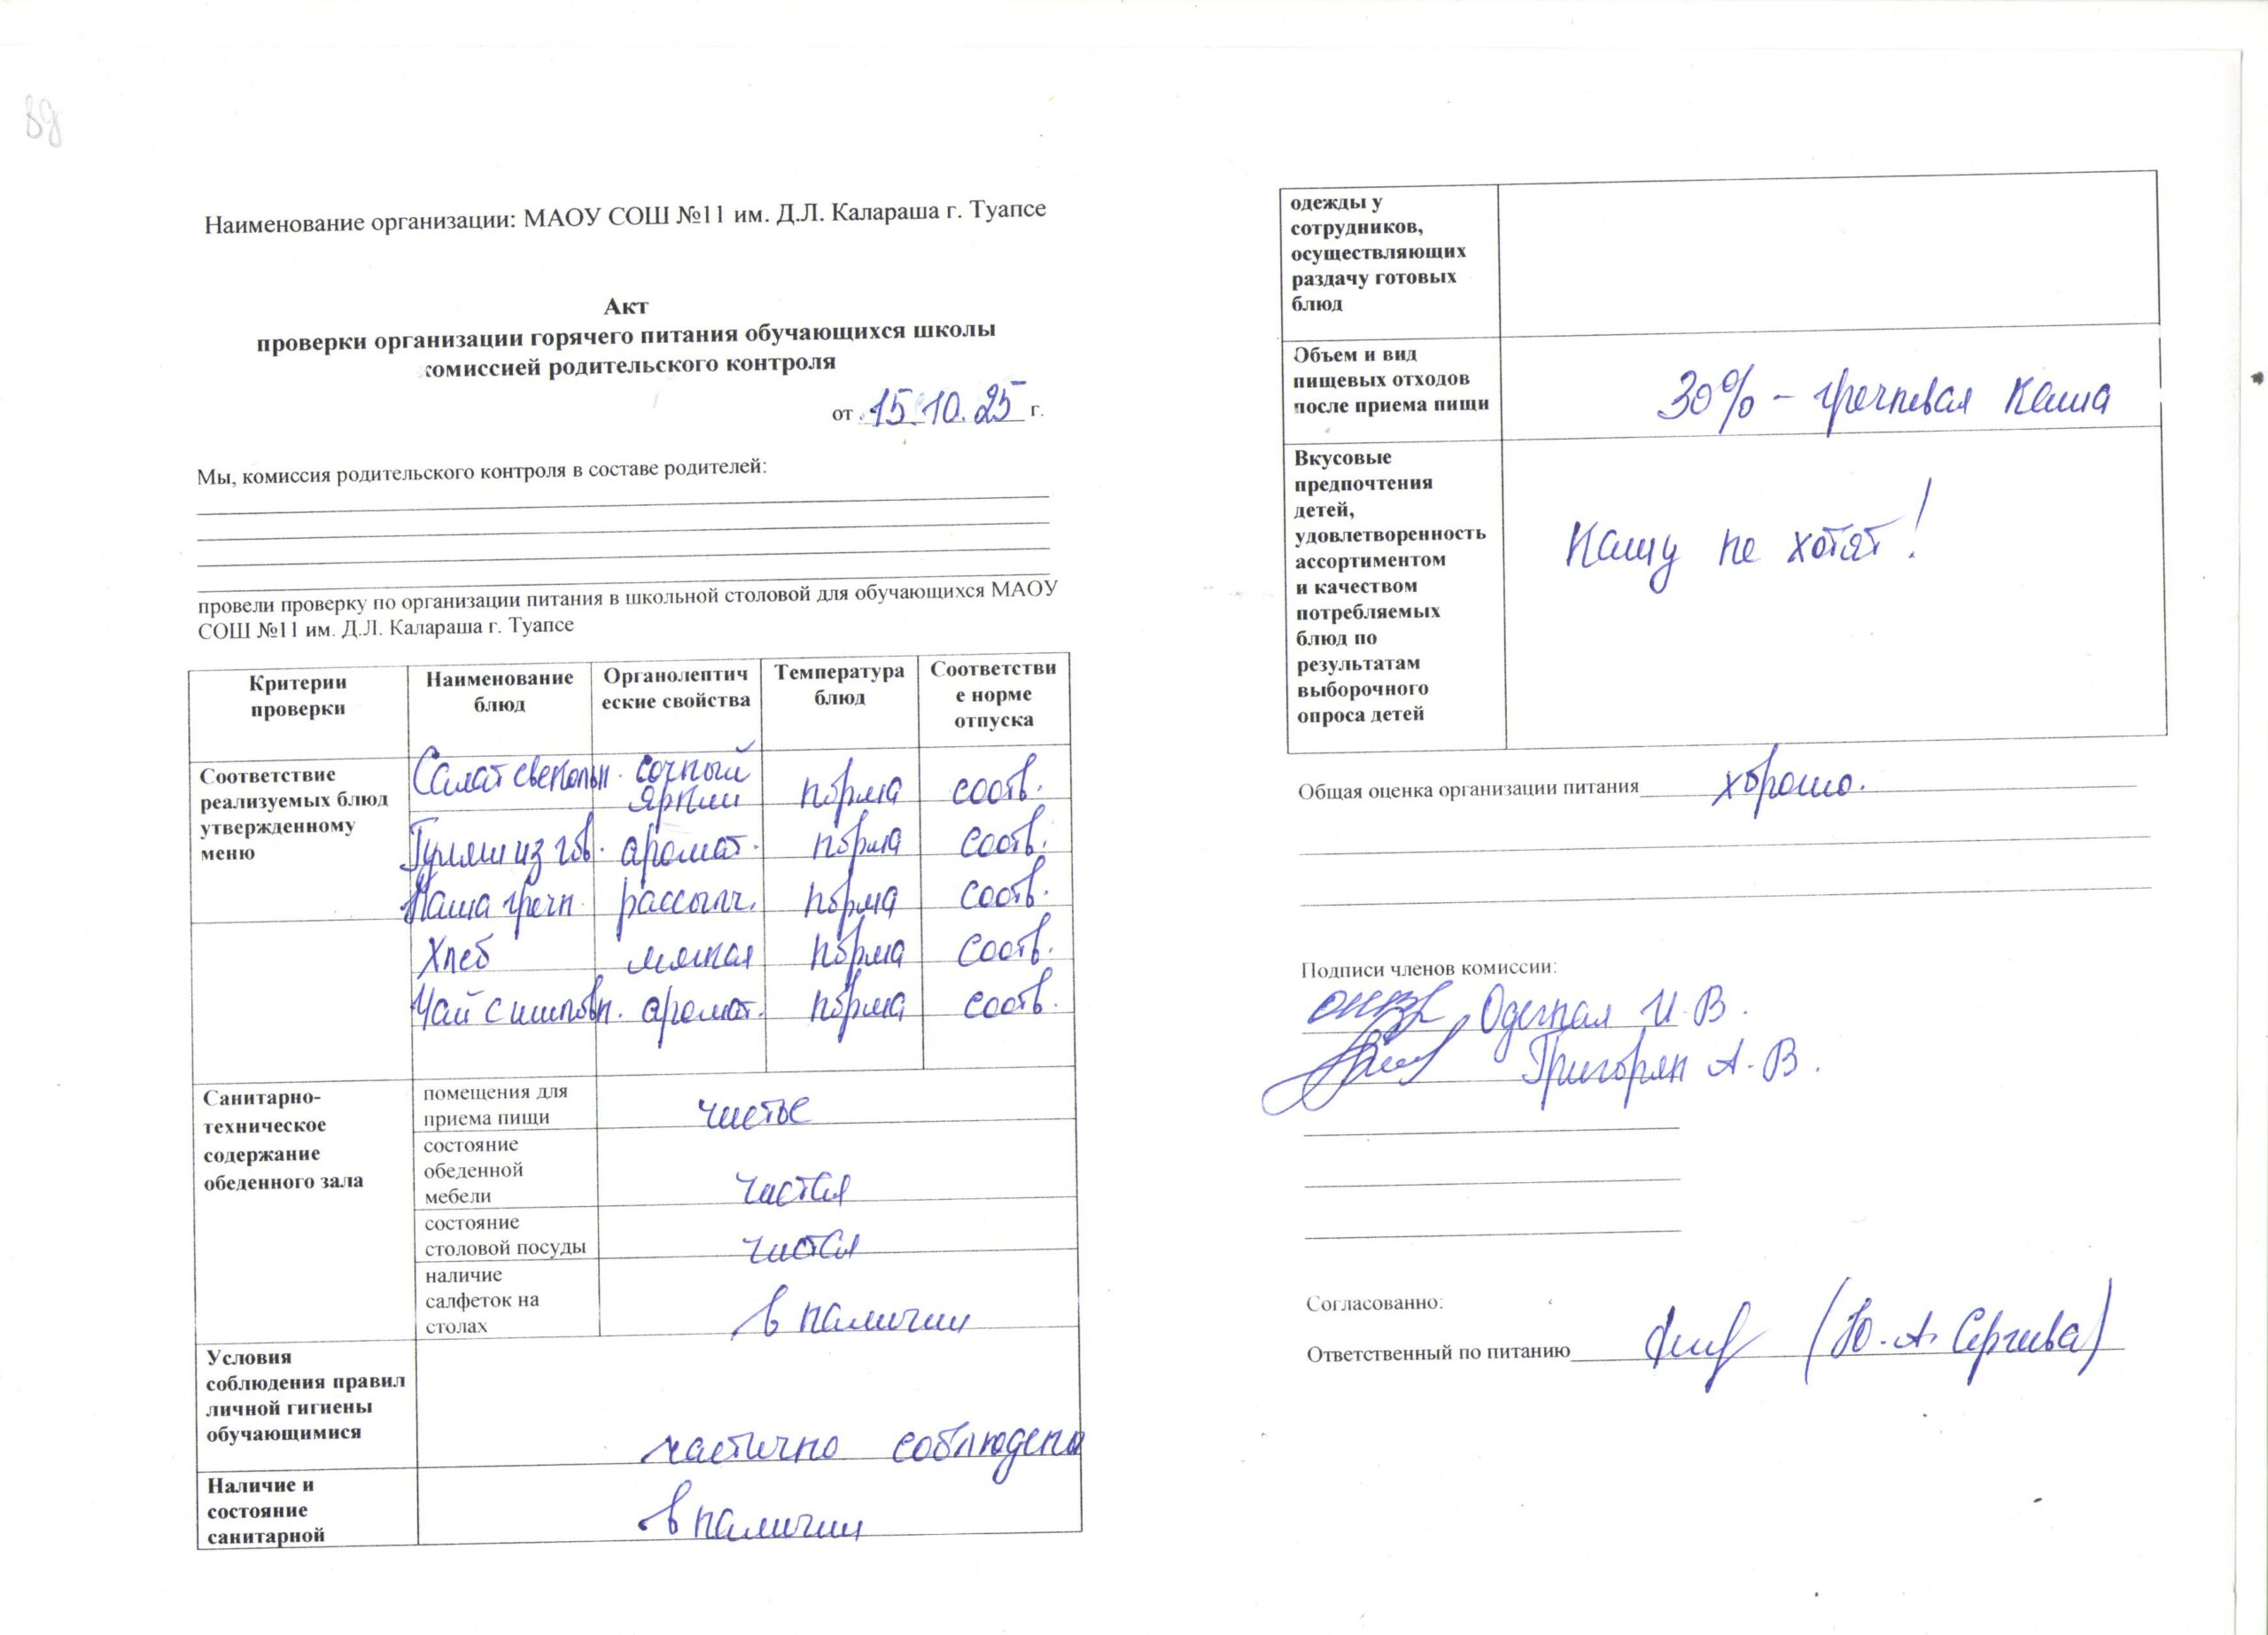 8д
Наименование организации: МАОУ СОШ №11 им. Д.Л. Калараша г. Туапсе
Акт
проверки организации горячего питания обучающихся школы
комиссией родительского контроля
от 15.10.25 г.
Мы, комиссия родительского контроля в составе родителей:
провели проверку по организации питания в школьной столовой для обучающихся МАОУ
СОШ №11 им. Д.Л. Калараша г. Туапсе
Критерии проверки Наименование блюд Органолептические свойства Температура блюд Соответствие норме отпуска
Соответствие
реализуемых блюд
утвержденному
меню
Салат свекольн. сочный яркий норма соотв.
Гуляш из гов. аромат. норма соотв.
Каша гречн. рассыпч. норма соотв.
Хлеб мягкая норма соотв.
Чай с шиповн. аромат. норма соотв.
Санитарно-
техническое
содержание
обеденного зала
помещения для
приема пищи чистые
состояние
обеденной
мебели чистая
состояние
столовой посуды чистая
наличие
салфеток на
столах в наличии
Условия
соблюдения правил
личной гигиены
обучающимися
частично соблюдены
Наличие и
состояние
санитарной
в наличии
одежды у
сотрудников,
осуществляющих
раздачу готовых
блюд
Объем и вид
пищевых отходов
после приема пищи
30% - гречневая каша
Вкусовые
предпочтения
детей,
удовлетворенность
ассортиментом
и качеством
потребляемых
блюд по
результатам
выборочного
опроса детей
Кашу не хотят!
Общая оценка организации питания хорошо.
Подписи членов комиссии:
И. В.
Григорян А. В.
Согласованно:
Ответственный по питанию (Ю. А. Сергеева)